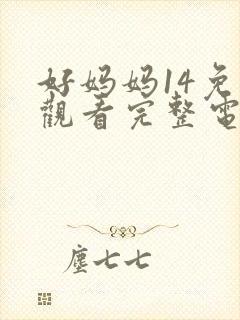 好妈妈14免
觀看完整電
塵七七